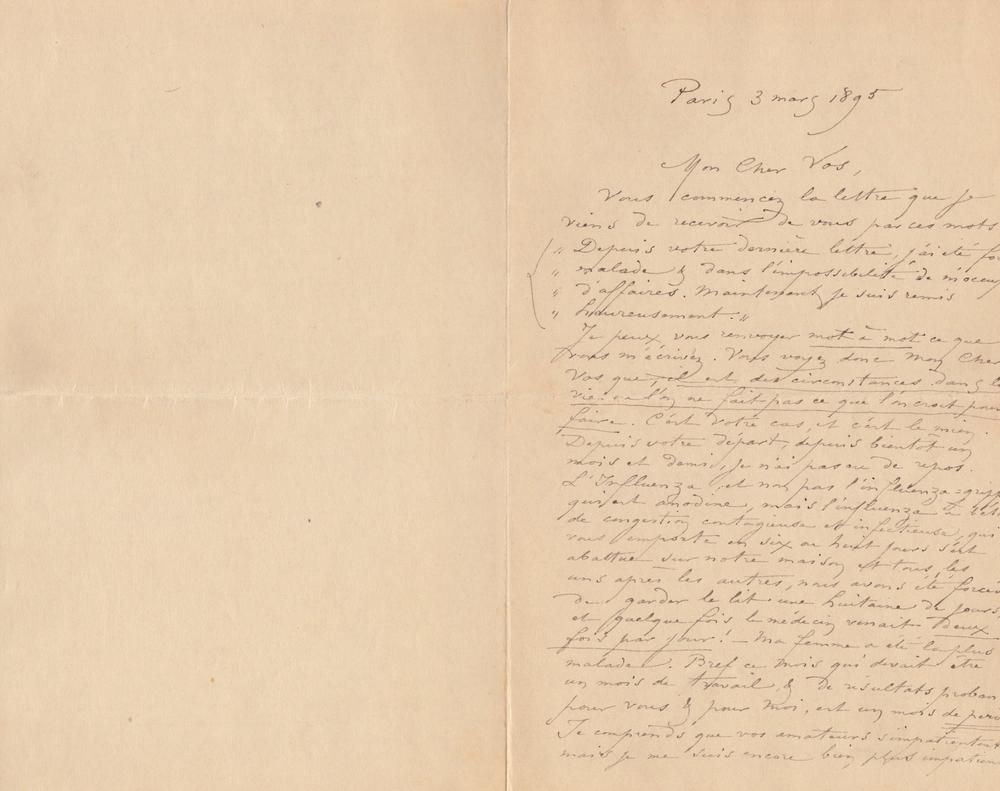 Paris 3 mars 1895
Mon Cher Vos,
Vous commencez la lettre que je
viens de recevoir de vous par ces mots
" Depuis votre dernière lettre, j'ai été for
" malade & dans l'impossibilité de m'occup
" d'affaires. Maintenant je suis remis
" heureusement. "
Je peux vous renvoyer mot à mot ce que
vous m'écrivez. Vous voyez donc Mon Cher
Vos que, il est des circonstances dans l
vie l'on ne fait pas ce que l'on croit pouv
faire. C'est votre cas, et c'est le mien.
Depuis votre départ, depuis bientôt un
mois et demi, je n'ai pas eu de repos.
L'Influenza, et non pas l'influenza-gripp
qui est anodine, mais l'influenza à
de congestion contagieuse et infectieuse, qui
vous emporte en six ou huit jours s'est
abattue sur notre maison et tous, les
uns après les autres, nous avons été forcé
de garder le lit une huitaine de jours,
et quelque fois le médecin venait deux
fois par jour! — Ma femme a été la plus
malade. Bref ce mois qui devait être
un mois de travail & de résultats proban
pour vous & pour moi, est un mois de perd
Je comprends que vos amateurs s'impatientent
mais je me suis encore bien plus impatien